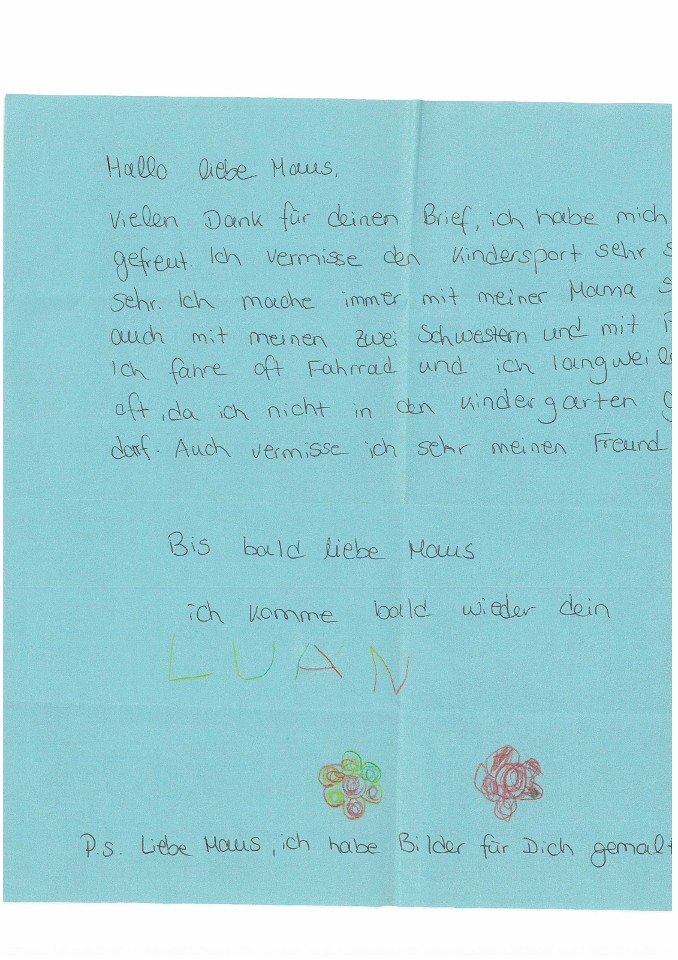 Hallo liebe Maus,
Vielen Dank für deinen Brief, ich habe mich
gefreut. Ich vermisse den Kindersport sehr
sehr. Ich mache immer mit meiner Mama
auch mit meinen zwei Schwestern und mit
Ich fahre oft Fahrrad und ich
oft, da ich nicht in den Kindergarten
darf. Auch vermisse ich sehr meinen Freund
Bis bald liebe Maus
ich komme bald wieder dein
LUAN
P.s. Liebe Maus, ich habe Bilder für Dich gemalt